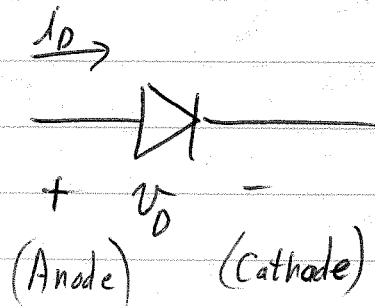 i_D
+ v_D -
(Anode) (Cathode)